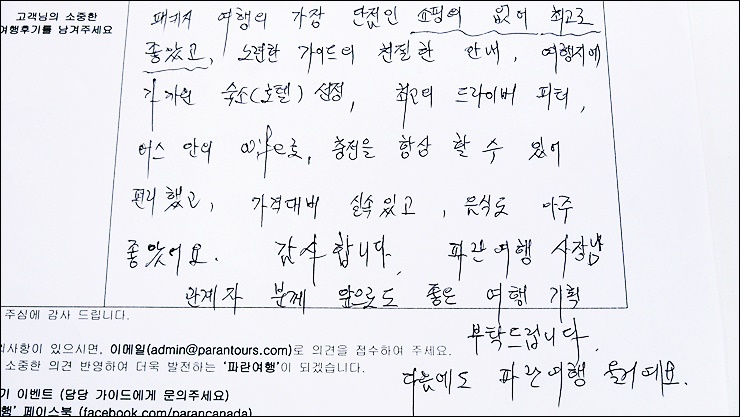 고객님의 소중한
여행후기를 남겨주세요
패키지 여행의 가장 단점인 쇼핑의 없어 최고로
좋았고, 노련한 가이드의 친절한 안내, 여행지에
가까운 숙소(호텔) 선정, 최고의 드라이버 피터,
버스 안의 wife로, 충전을 항상 할 수 있어
편리했고, 가격대비 실속있고, 음식도 아주
좋았어요. 감사합니다. 파란여행 사장님
관계자 분께 앞으로도 좋은 여행 기획
부탁드립니다.
다음에도 파란여행 올거예요.
주심에 감사 드립니다.
사항이 있으시면, 이메일(admin@parantours.com)로 의견을 접수하여 주세요.
소중한 의견 반영하여 더욱 발전하는 '파란여행'이 되겠습니다.
기 이벤트 (담당 가이드에게 문의주세요)
행' 페이스북 (facebook.com/parancanada)